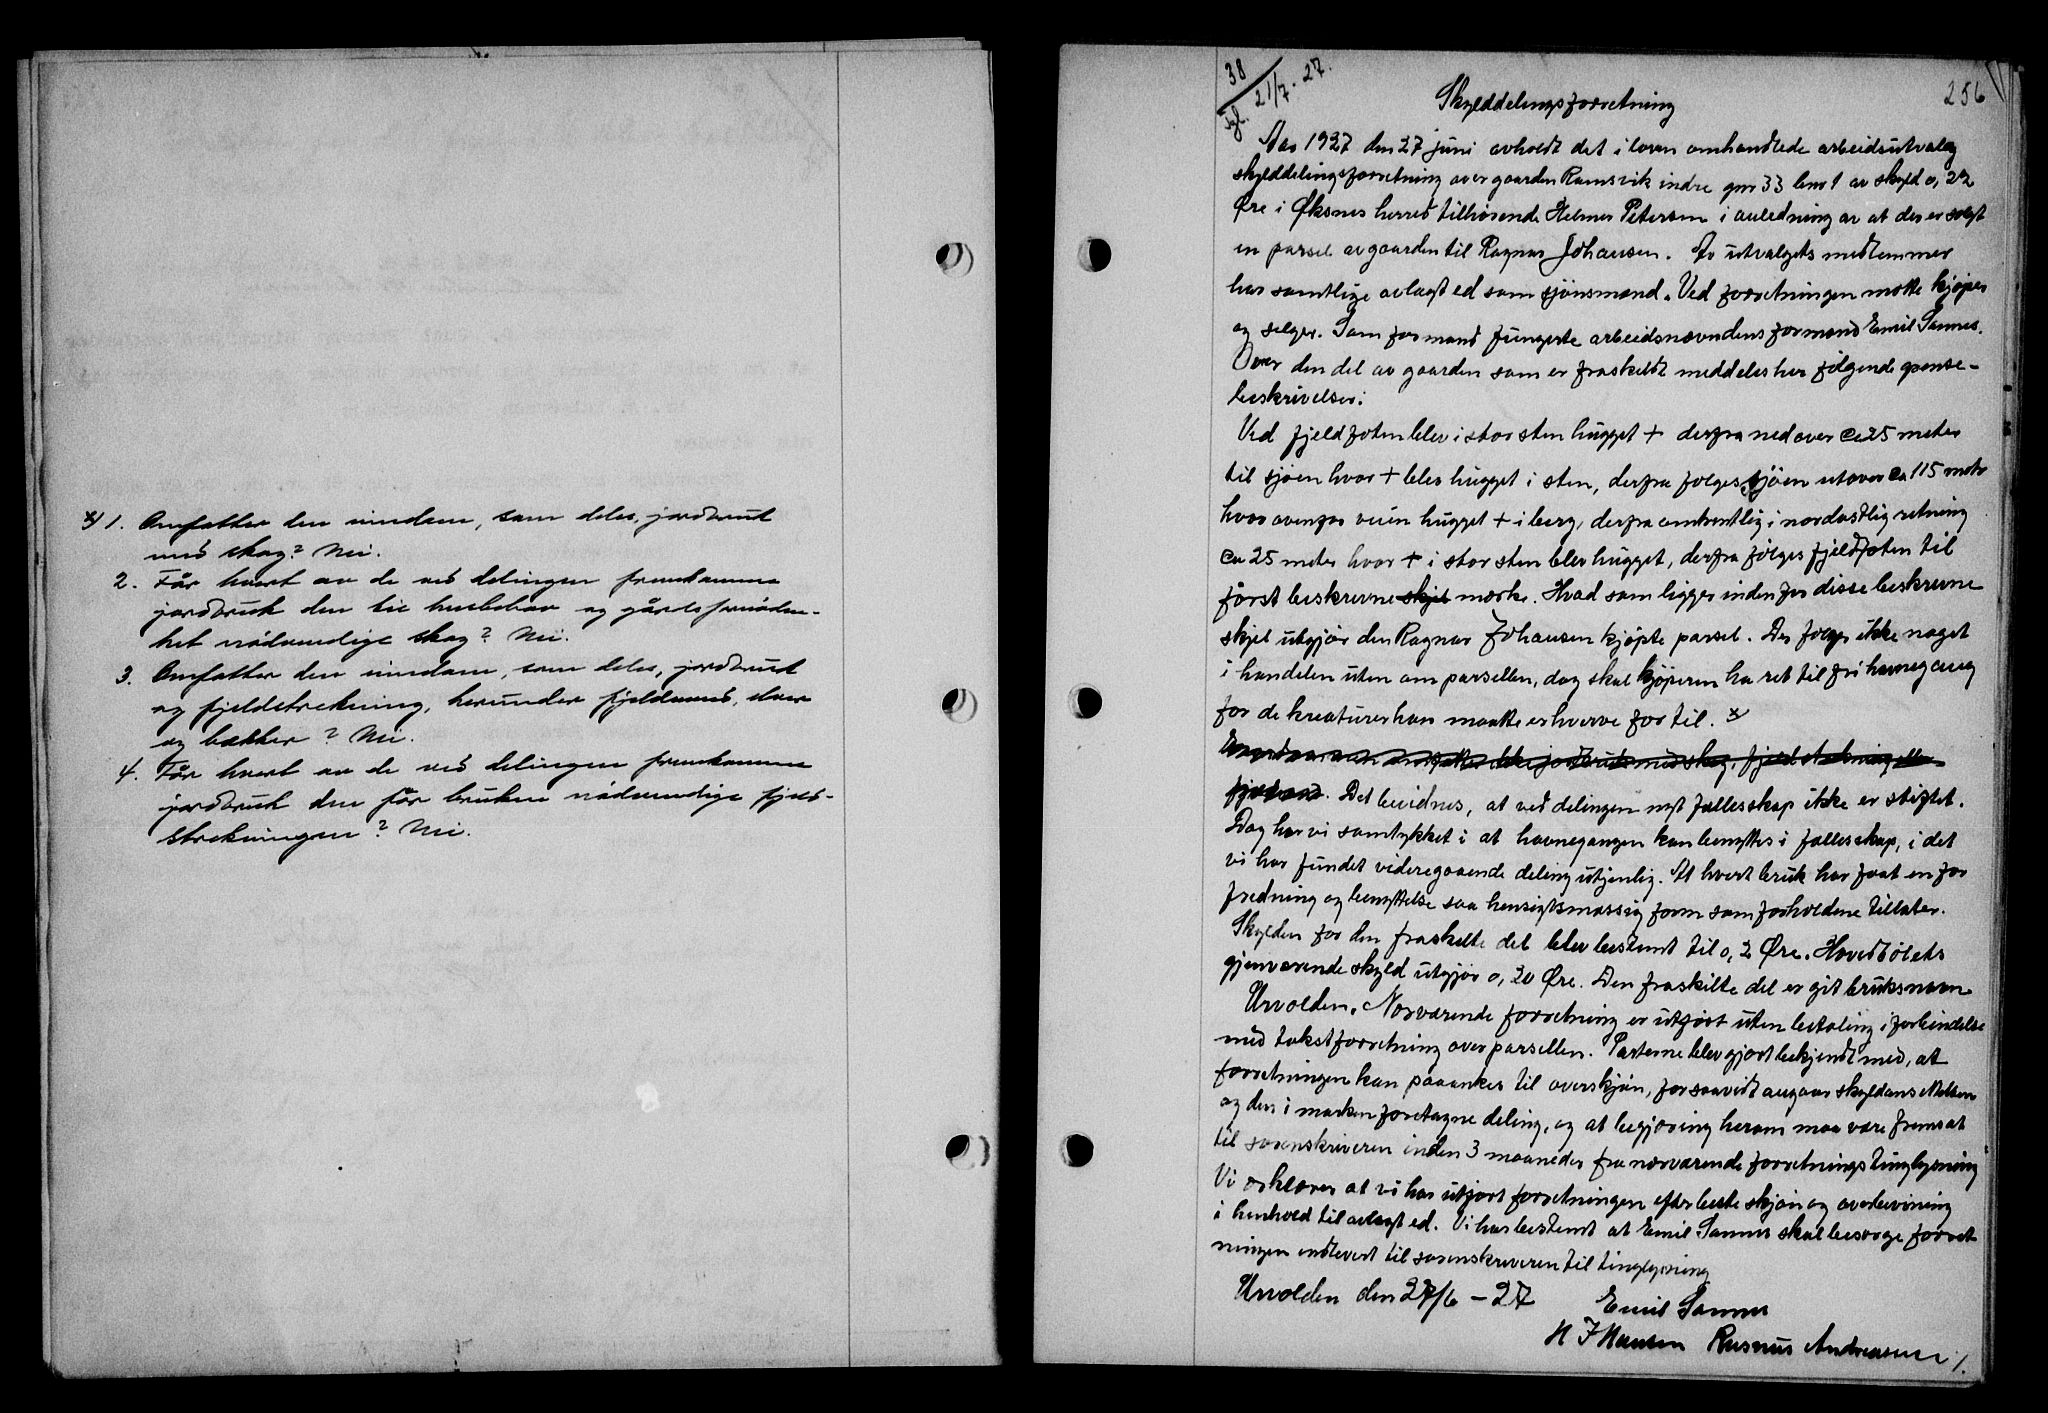 x/ 1. Omfatter den eiendom, som deles, jordbruk
med skog? Nei.
2. Får hvert av de ved delingen fremkomne
jordbruk den til husbehov og gårdsfornöden-
het nödvendige skog? Nei.
3. Omfatter den eiendom, som deles, jordbruk
og fjeldstrekning, herunder fjeldvand, elver
og bekker? Nei.
4. Får hvert av de ved delingen fremkomne
jordbruk den for bruken nödvendige fjeld-
strekningen? Nei.
38
tgl. 21/7. 27.
256
Skylddelingsforretning
Aar 1927 den 27 juni avholdt det i loven omhandlede arbeidsutvalg
skylddelingsforretning over gaarden Ramsvik indre gnr 33 bnr 1 av skyld 0,22
Øre i Øksnes herred tilhørende Helmer Petersen i anledning av at der er solgt
en parsel av gaarden til Ragnar Johansen. Av utvalgets medlemmer
har samtlige avlagt ed som sjönsmænd. Ved forretningen møtte kjøper
og selger. Som formand fungerte arbeidsnævndens formand Emil Sannes.
Over den del av gaarden som er fraskeldt meddeles her følgende grense-
beskrivelse:
Ved fjeldfoten blev i stor sten hugget + derfra nedover ca 25 meter
til sjøen hvor + blev hugget i sten, derfra følges sjöen utover ca 115 meter
hvor ovenfor veien hugget + i berg, derfra omtrentlig i nordøstlig retning
ca 25 meter hvor + i stor sten blev hugget, derfra følges fjeldfoten til
først beskrevne skjel mærke. Hvad som ligger indenfor disse beskrevne
skjel utgjør den Ragnar Johansen kjøpte parsel. Der følger ikke noget
i handelen uten om parsellen, dog skal kjøperen ha ret til fri havnegang
for de kreaturer han maatte erhverve for til. x/
omfatter ikke jordbruk med skog, fjeldstrekning eller
fjeldvand. Det bevidnes, at ved delingen nyt fællesskap ikke er stiftet.
Dog har vi samtykket i at havnegangen kan benyttes i fællesskap, i det
vi har fundet videregaaende deling utjenlig. At hvert bruk har faat en for
fredning og benyttelse saa hensigtsmæssig form som forholdene tillater.
Skylden for den fraskilte del blev bestemt til 0,2 Øre. Hovedbølets
gjenværende skyld utgjør 0,20 Øre. Den fraskilte del er git bruksnavn
Urvolden. Nærværende forretning er utført uten betaling i forbindelse
med takstforretning over parsellen. Parterne blev gjort bekjendt med, at
forretningen kan paaankes til overskjön, forsaavidt angaar skyldansættelsen
og den i marken foretagne deling, og at begjæring herom maa være fremsat
til sorenskriveren inden 3 maaneder fra nærværende forretnings tinglysning
Vi erklærer at vi har utført forretningen efter beste skjön og overbevisning
i henhold til avlagt ed. Vi har bestemt at Emil Sannes skal besørge forret
ningen indlevert til sorenskriveren til tinglysning
Urvolden den 27/6 – 27
Emil Sannes
H J Hansen Rasmus Andreassen /.